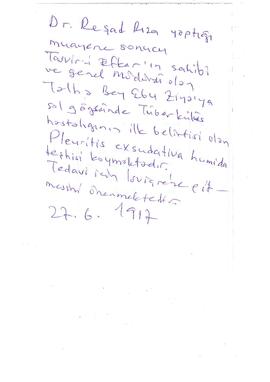 Dr. Reşad Rıza yaptığı
muayene sonucu
Tasvir-i Efkar'ın sahibi
ve genel Müdürü olan
Talha Bey Ebu Ziya'ya
sol göğsünde Tüberküloz
hastalığının ilk belirtisi olan
Pleuritis exsudativa humida
teşhisi koymaktadır.
Tedavi için İsviçre'ye git-
mesini önermektedir.
27.6. 1917